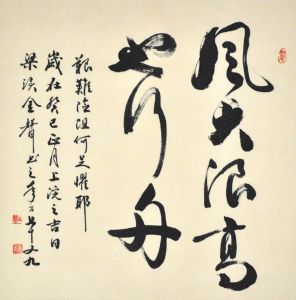 风大浪高
行舟
艱難險阻何足懼耶
歲在癸巳正月上浣之吉日
梁溪金聲书之年五十又九